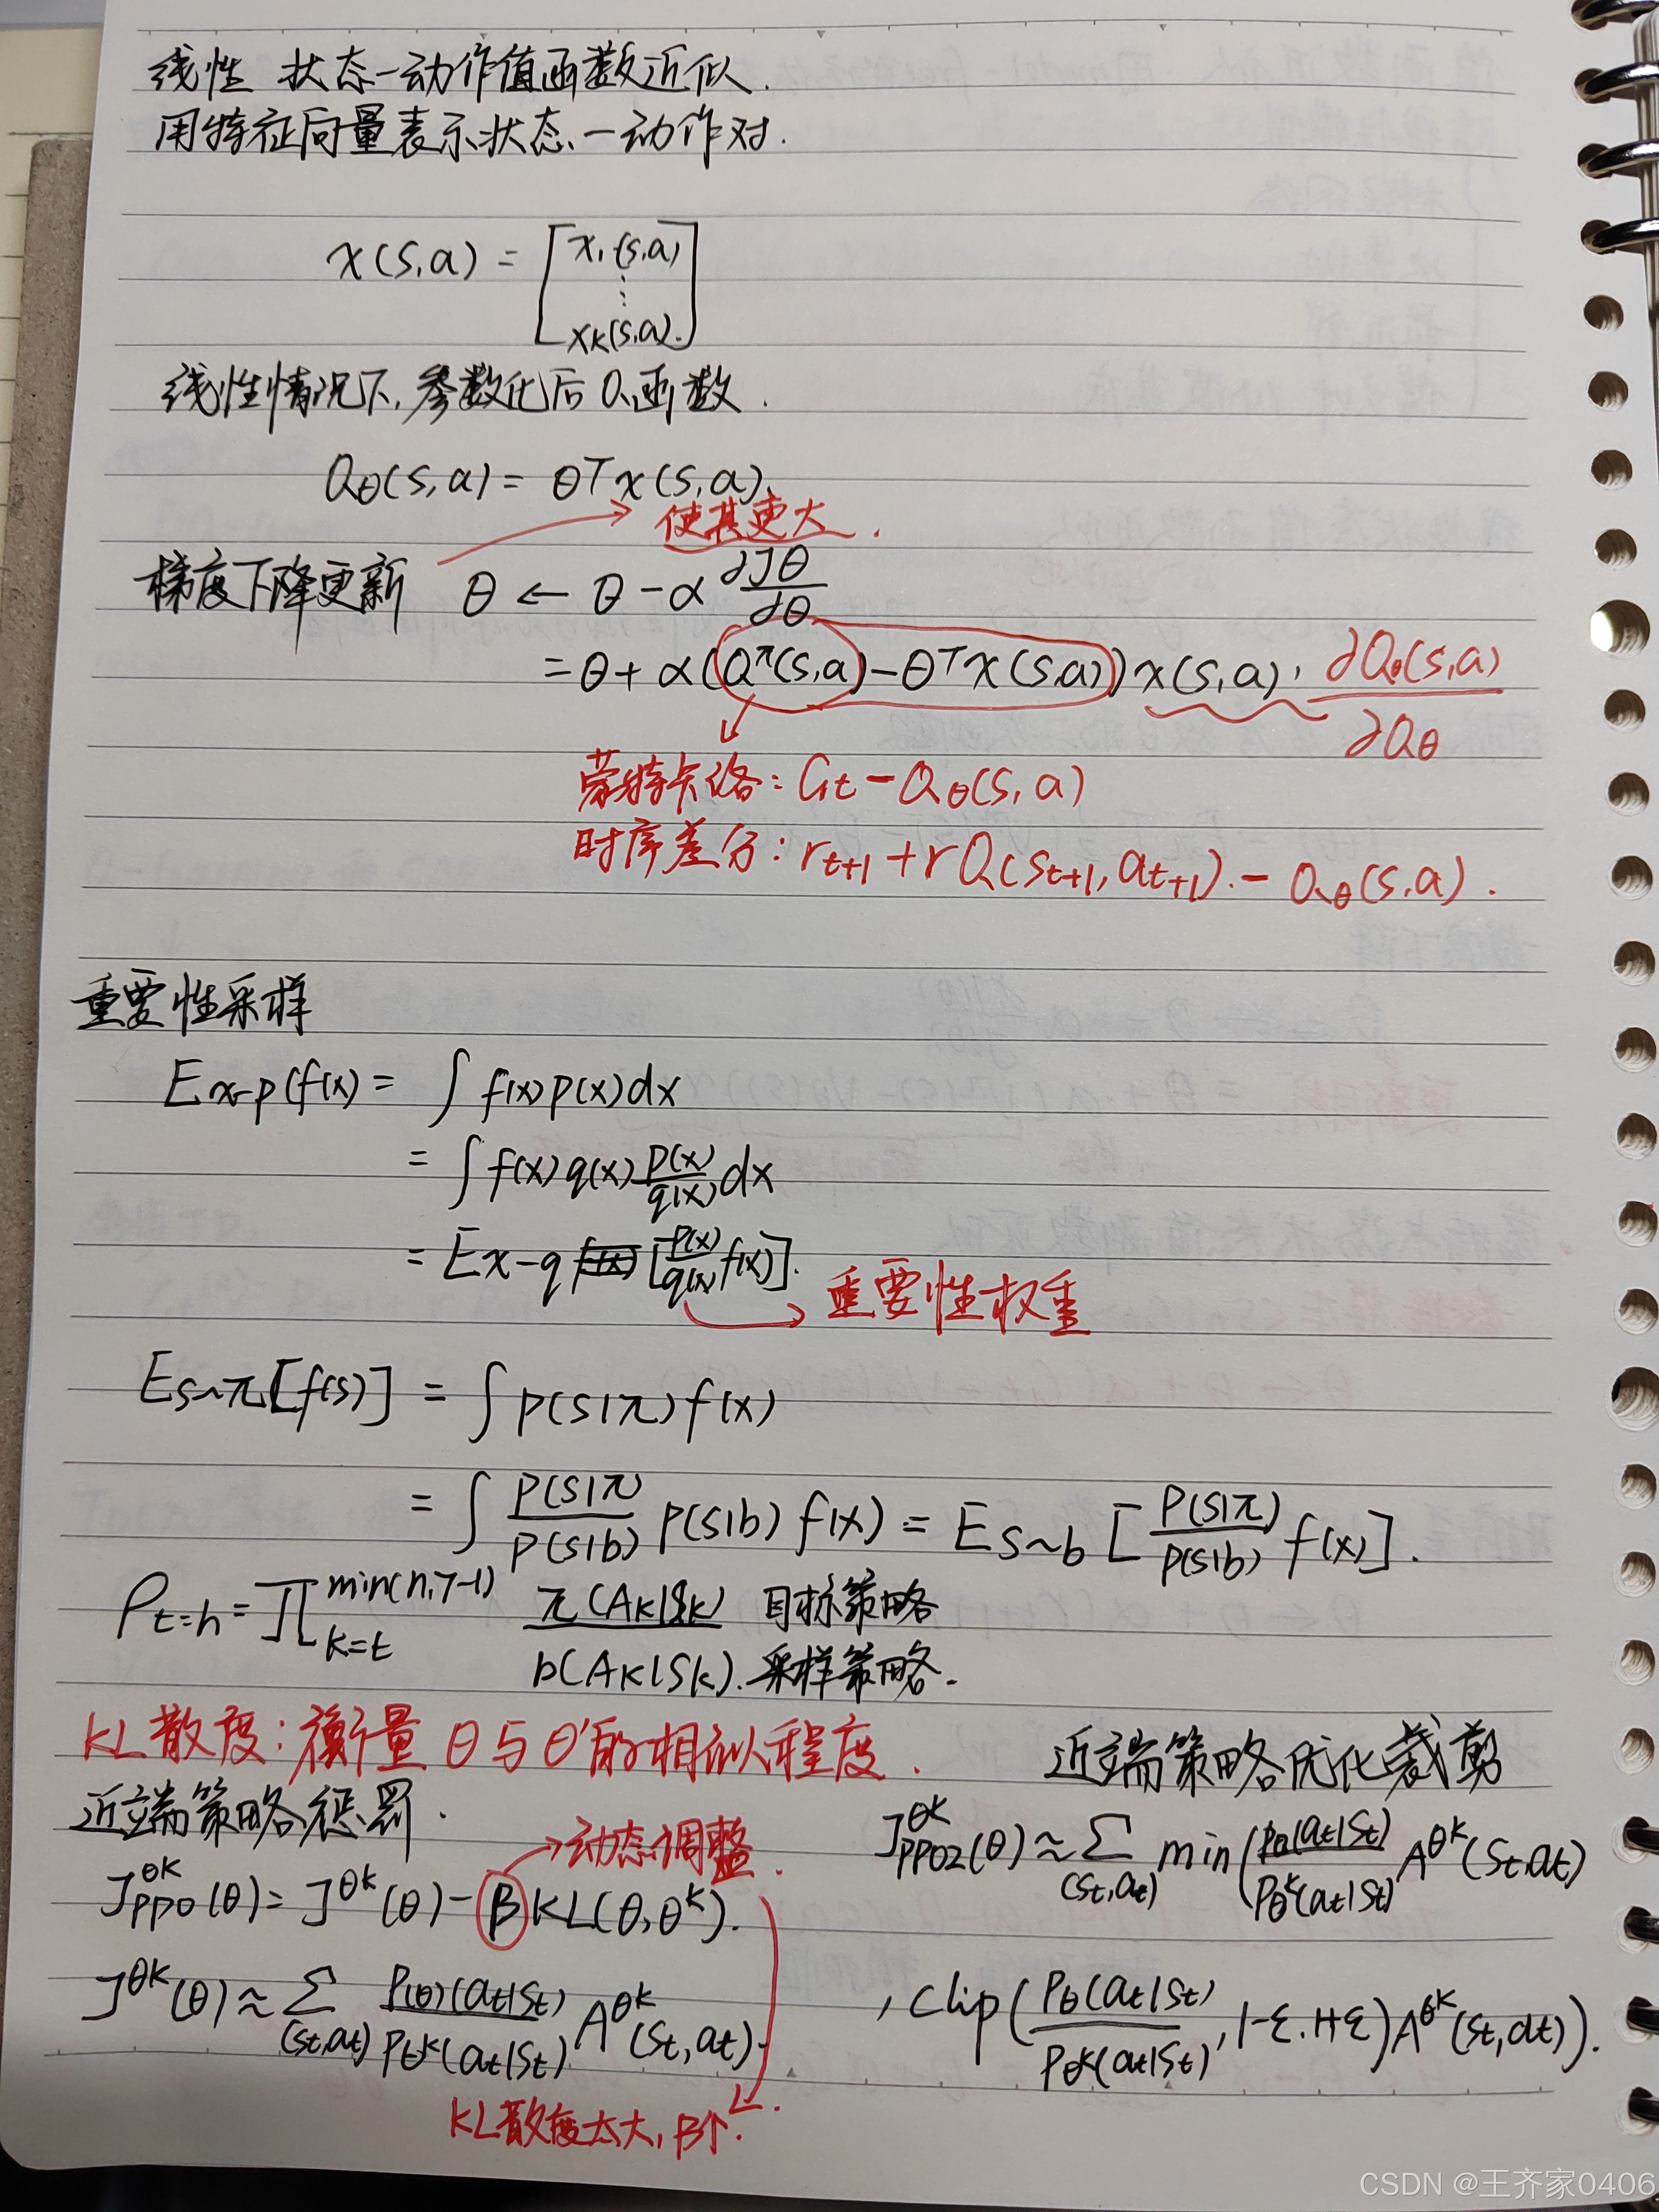 线性 状态-动作值函数近似.
用特征向量表示状态-动作对.
x(s,a) = [x₁(s,a)
⋮
xₖ(s,a)]
线性情况下,参数化后Q函数.
Qθ(s,a) = θᵀx(s,a).
使其更大.
梯度下降更新 θ ← θ - α ∂Jθ/∂θ
= θ + α(Q^π(s,a) - θᵀx(s,a)) x(s,a), ∂Qθ(s,a)/∂Qθ
蒙特卡洛: Gt - Qθ(s,a)
时序差分: r_{t+1} + r Q(s_{t+1}, a_{t+1}). - Qθ(s,a).
重要性采样
E_{x~p}(f(x) = ∫ f(x)p(x)dx
= ∫ f(x) q(x) p(x)/q(x) dx
= E_{x-q} [p(x)/q(x) f(x)].
重要性权重
E_{s~π}[f(s)] = ∫ p(s|π) f(x)
= ∫ p(s|π)/p(s|b) p(s|b) f(x) = E_{s~b} [p(s|π)/p(s|b) f(x)].
ρ_{t=h} = ∏_{k=t}^{min(h,T-1)} π(Ak|Sk) 目标策略
b(Ak|Sk). 采样策略.
KL散度: 衡量 θ 与 θ' 的相似程度.
近端策略优化裁剪
近端策略惩罚.
动态调整.
J_{PPO2}^{θk}(θ) ≈ Σ_{(st,at)} min(pθ(at|st)/pθk(at|st) A^{θk}(st,at)
J_{PPO}^{θk}(θ) = J^{θk}(θ) - β KL(θ,θ^k).
J^{θk}(θ) ≈ Σ_{(st,at)} p(θ)(at|st)/pθk(at|st) A^{θk}(st,at).
, clip(pθ(at|st)/pθk(at|st), 1-ε. 1+ε) A^{θk}(st,at)).
KL散度太大, β↑.
CSDN @王齐家0406